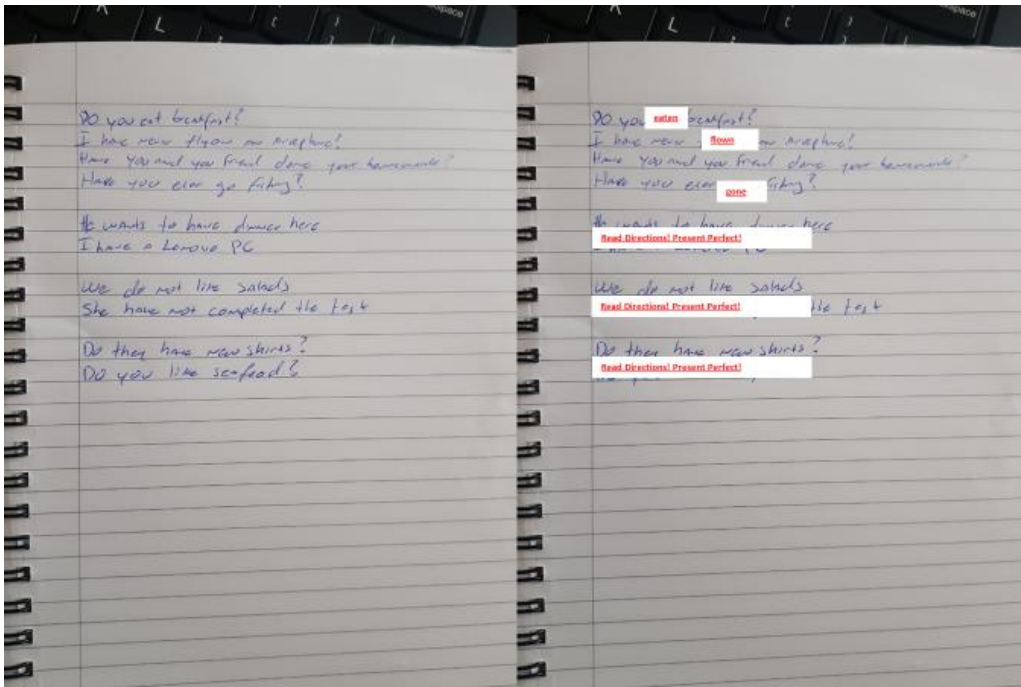 Do you eat breakfast?
I have never flyown an airplane?
Have you and you friend done your homework?
Have you ever go fishing?
He wants to have dinner here
I have a Lenovo PC
We do not like salads
She have not completed the test
Do they have new shirts?
Do you like seafood?
Do you eaten breakfast?
I have never flown an airplane?
Have you and you friend done your homework?
Have you ever gone fishing?
He wants to have dinner here
Read Directions! Present Perfect!
PC
We do not like salads
Read Directions! Present Perfect! the test
Do they have new shirts?
Read Directions! Present Perfect!